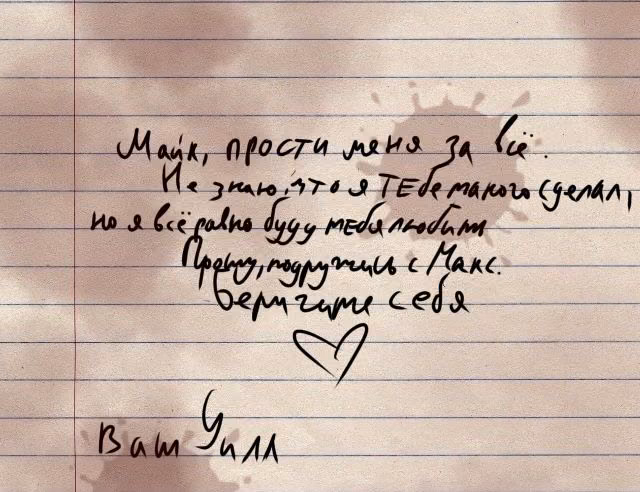 Майк, прости меня за всё.
Не знаю, что я ТЕбе такого сделал,
но я всё равно буду тебя любить
Прошу, подружись с Макс.
Беригите себя
Ваш Уилл